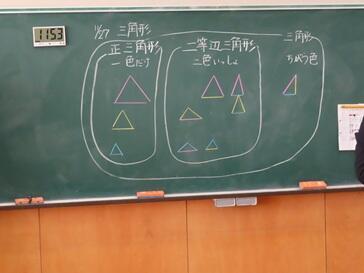 1153
11/27 三角形
正三角形
一色だけ
二等辺三角形
二色いっしょ
三角形
ちがう色